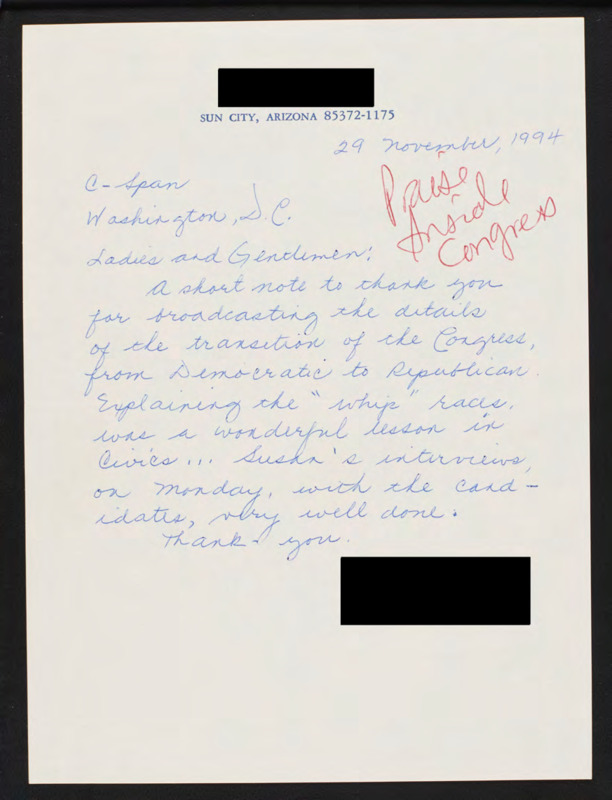 SUN CITY, ARIZONA 85372-1175
29 November, 1994
Praise
Inside
Congress
C-Span
Washington, D.C.
Ladies and Gentlemen:
A short note to thank you
for broadcasting the details
of the transition of the Congress,
from Democratic to Republican.
Explaining the "whip" races,
was a wonderful lesson in
Civics... Susan's interviews,
on Monday, with the cand-
idates, very well done.
Thank-you.